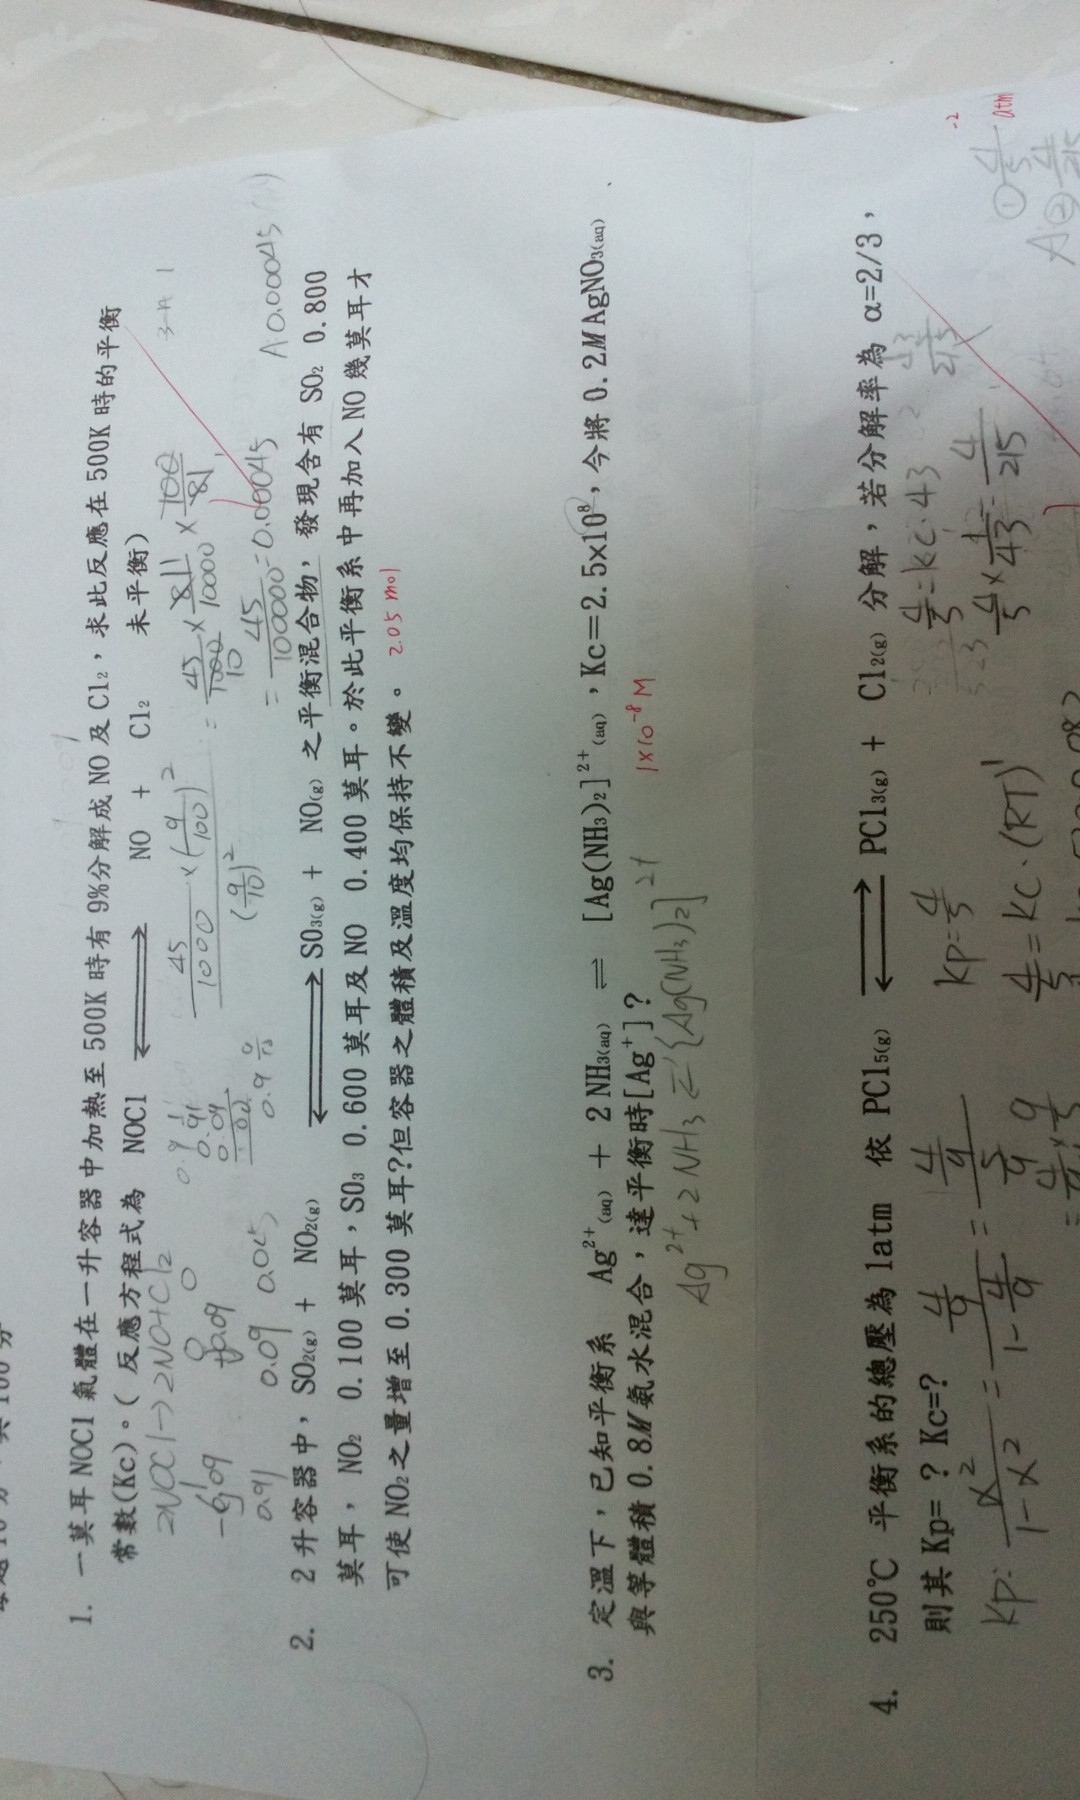 1. 一莫耳 NOCl 氣體在一升容器中加熱至 500K 時有 9%分解成 NO 及 Cl₂，求此反應在 500K 時的平衡
常數(Kc)。( 反應方程式為 NOCl ⇌ NO + Cl₂ 未平衡)
2NOCl → 2NO+Cl₂
1 0 0
-0.09 +0.09
0.91 0.09 0.045
45/1000 × (9/100)² / (9/10)²
= 45/1000 × 81/10000 × 100/81
= 45/100000 = 0.00045
A 0.00045
2. 2 升容器中，SO₂(g) + NO₂(g) ⇌ SO₃(g) + NO(g) 之平衡混合物，發現含有 SO₂ 0.800
莫耳，NO₂ 0.100 莫耳，SO₃ 0.600 莫耳及 NO 0.400 莫耳。於此平衡系中再加入 NO 幾莫耳才
可使 NO₂之量增至 0.300 莫耳?但容器之體積及溫度均保持不變。
2.05 mol
3. 定溫下，已知平衡系 Ag²⁺(aq) + 2 NH₃(aq) ⇌ [Ag(NH₃)₂]²⁺(aq)，Kc＝2.5x10⁸，今將 0.2M AgNO₃(aq)
與等體積 0.8M 氨水混合，達平衡時[Ag⁺]?
1×10⁻⁸ M
Ag²⁺+2NH₃ ⇌ [Ag(NH₃)₂]²⁺
4. 250℃ 平衡系的總壓為 1atm 依 PCl₅(g) ⇌ PCl₃(g) + Cl₂(g) 分解，若分解率為 α=2/3，
則其 Kp= ? Kc=?
Kp: α²/1-α² = 4/9 / 1-4/9 = 4/9 / 5/9
Kp=4/5
4/5=Kc·43
4/5 = Kc·(RT)¹
4/5 × 1/43 = 4/215
A ① 4/5 atm
② 4/215
-2